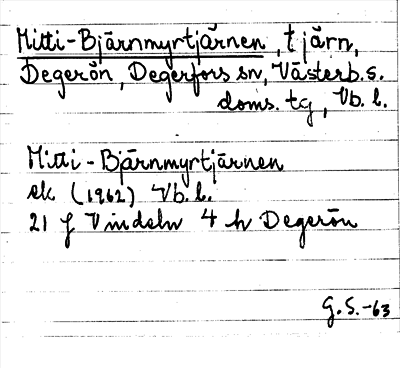 Mitti-Bjärnmyrtjärnen, tjärn,
Degerön, Degerfors sn, Västerb.s.
doms. tg, Vb. l.
Mitti-Bjärnmyrtjärnen
ek (1962) Vb. l.
21 J Vindeln 4 h Degerön
G.S.-63